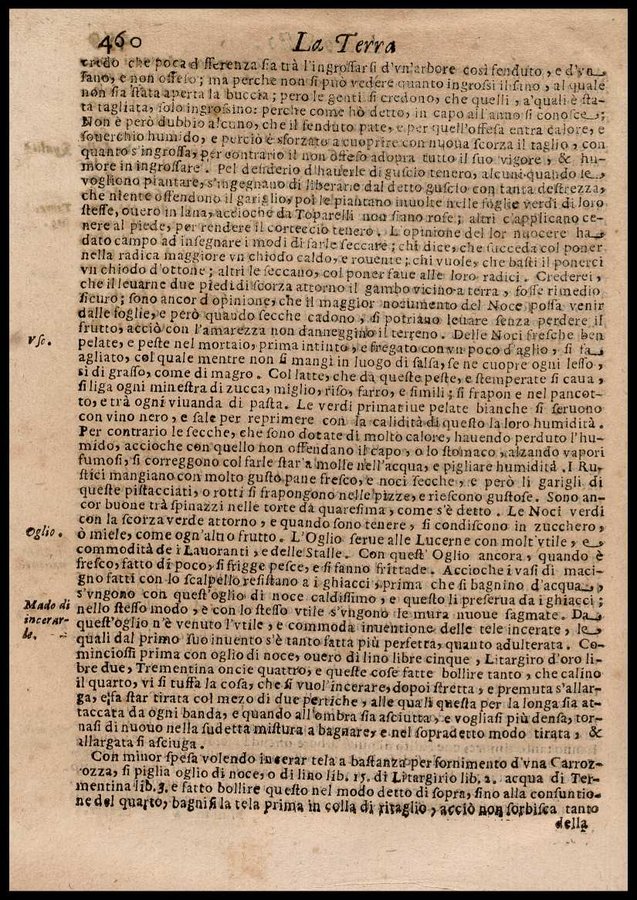 460 La Terra
credo che poca d fferenza sia trà l'ingrossarsi d'vn'arbore così fenduto, e d'vn
sano, e non offeso; ma perche non si può vedere quanto ingrossi il sano, al quale
non sia stata aperta la buccia; pero le genti si credono, che quelli, a'quali è sta-
ta tagliata, solo ingrossino: perche come hò detto, in capo all'anno si conosce;
Non è però dubbio alcuno, che il fenduto pate, e per quell'offesa entra calore, e
souerchio humido, e perciò è sforzato a cuoprire con nuoua scorza il taglio, con
quanto s'ingrossa, per contrario il non offeso adopra tutto il suo vigore, & hu-
more in ingrossare. Pel desiderio d'hauerle di guscio tenero, alcuni quando le
vogliono piantare, s'ingegnano di liberarle dal detto guscio con tanta destrezza,
che niente offendono il gariglio, poi le piantano inuolte nelle foglie verdi di loro
stesse, ouero in lana, accioche da Toparelli non siano rose; altri c'applicano ce-
nere al piede, per rendere il corteccio tenero. L'opinione del lor nuocere ha
dato campo ad insegnare i modi di farle seccare; chi dice, che succeda col poner
nella radica maggiore vn chiodo caldo, e rouente; chi vuole, che basti il ponerci
vn chiodo d'ottone; altri le seccano, col poner faue alle loro radici. Crederei,
che il leuarne due piedi di scorza attorno il gambo vicino a terra, fosse rimedio
sicuro; sono ancor d'opinione, che il maggior nocumento del Noce possa venir
dalle foglie, e però quando secche cadono, si potriano leuare senza perdere il
frutto, acciò con l'amarezza non danneggino il terreno. Delle Noci fresche ben
Vso.
pelate, e peste nel mortaio, prima intinto, e fregato con vn poco d'aglio, si fa
agliato, col quale mentre non si mangi in luogo di salsa, se ne cuopre ogni lesso,
si di grasso, come di magro. Col latte, che da queste peste, e stemperate si caua,
si liga ogni minestra di zucca, miglio, riso, farro, e simili; si frapon e nel pancot-
to, e trà ogni viuanda di pasta. Le verdi primatiue pelate bianche si seruono
con vino nero, e sale per reprimere con la calidità di questo la loro humidità.
Per contrario le secche, che sono dotate di molto calore, hauendo perduto l'hu-
mido, accioche con quello non offendano il capo, o lo stomaco, alzando vapori
fumosi, si correggono col farle star a molle nell'acqua, e pigliare humidità. I Ru-
stici mangiano con molto gusto pane fresco, e noci secche, e però li garigli di
queste pistacciati, o rotti si frapongono nelle pizze, e riescono gustose. Sono an-
cor buone trà spinazzi nelle torte da quaresima, come s'è detto. Le Noci verdi
con la scorza verde attorno, e quando sono tenere, si condiscono in zucchero,
Oglio.
ò miele, come ogn'altro frutto. L'Oglio serue alle Lucerne con molt'vtile, e
commodità de i Lauoranti, e delle Stalle. Con quest' Oglio ancora, quando è
fresco, fatto di poco, si frigge pesce, e si fanno frittade. Accioche i vasi di maci-
gno fatti con lo scalpello resistano a i ghiacci, prima che si bagnino d'acqua,
s'vngono con quest'oglio di noce caldissimo, e questo li preserua da i ghiacci;
Mado di
incerar-
le.
nello stesso modo, e con lo stesso vtile s'vngono le mura nuoue sagmate. Da
quest'oglio n'è venuto l'vtile, e commoda inuentione delle tele incerate, le
quali dal primo suo inuento s'è tanto fatta più perfetta, quanto adulterata. Co-
minciossi prima con oglio di noce, ouero di lino libre cinque, Litargiro d'oro li-
bre due, Trementina oncie quattro, e queste cose fatte bollire tanto, che calino
il quarto, vi si tuffa la cosa, che si vuol'incerare, dopoi stretta, e premuta s'allar-
ga, e fa star tirata col mezo di due pertiche, alle quali questa per la longa sia at-
taccata da ogni banda, e quando all'ombra sia asciutta, e vogliasi più densa, tor-
nasi di nuouo nella sudetta mistura a bagnare, e nel sopradetto modo tirata, &
allargata si asciuga.
Con minor spesa volendo incerar tela a bastanza per fornimento d'vna Carroz-
ozza, si piglia oglio di noce, o di lino lib. 15. di Litargirio lib. 2. acqua di Ter-
mentina lib. 3. e fatto bollire questo nel modo detto di sopra, sino alla consuntio-
ne del quarto, bagnisi la tela prima in colla di ritaglio, acciò non sorbisca tanto
della